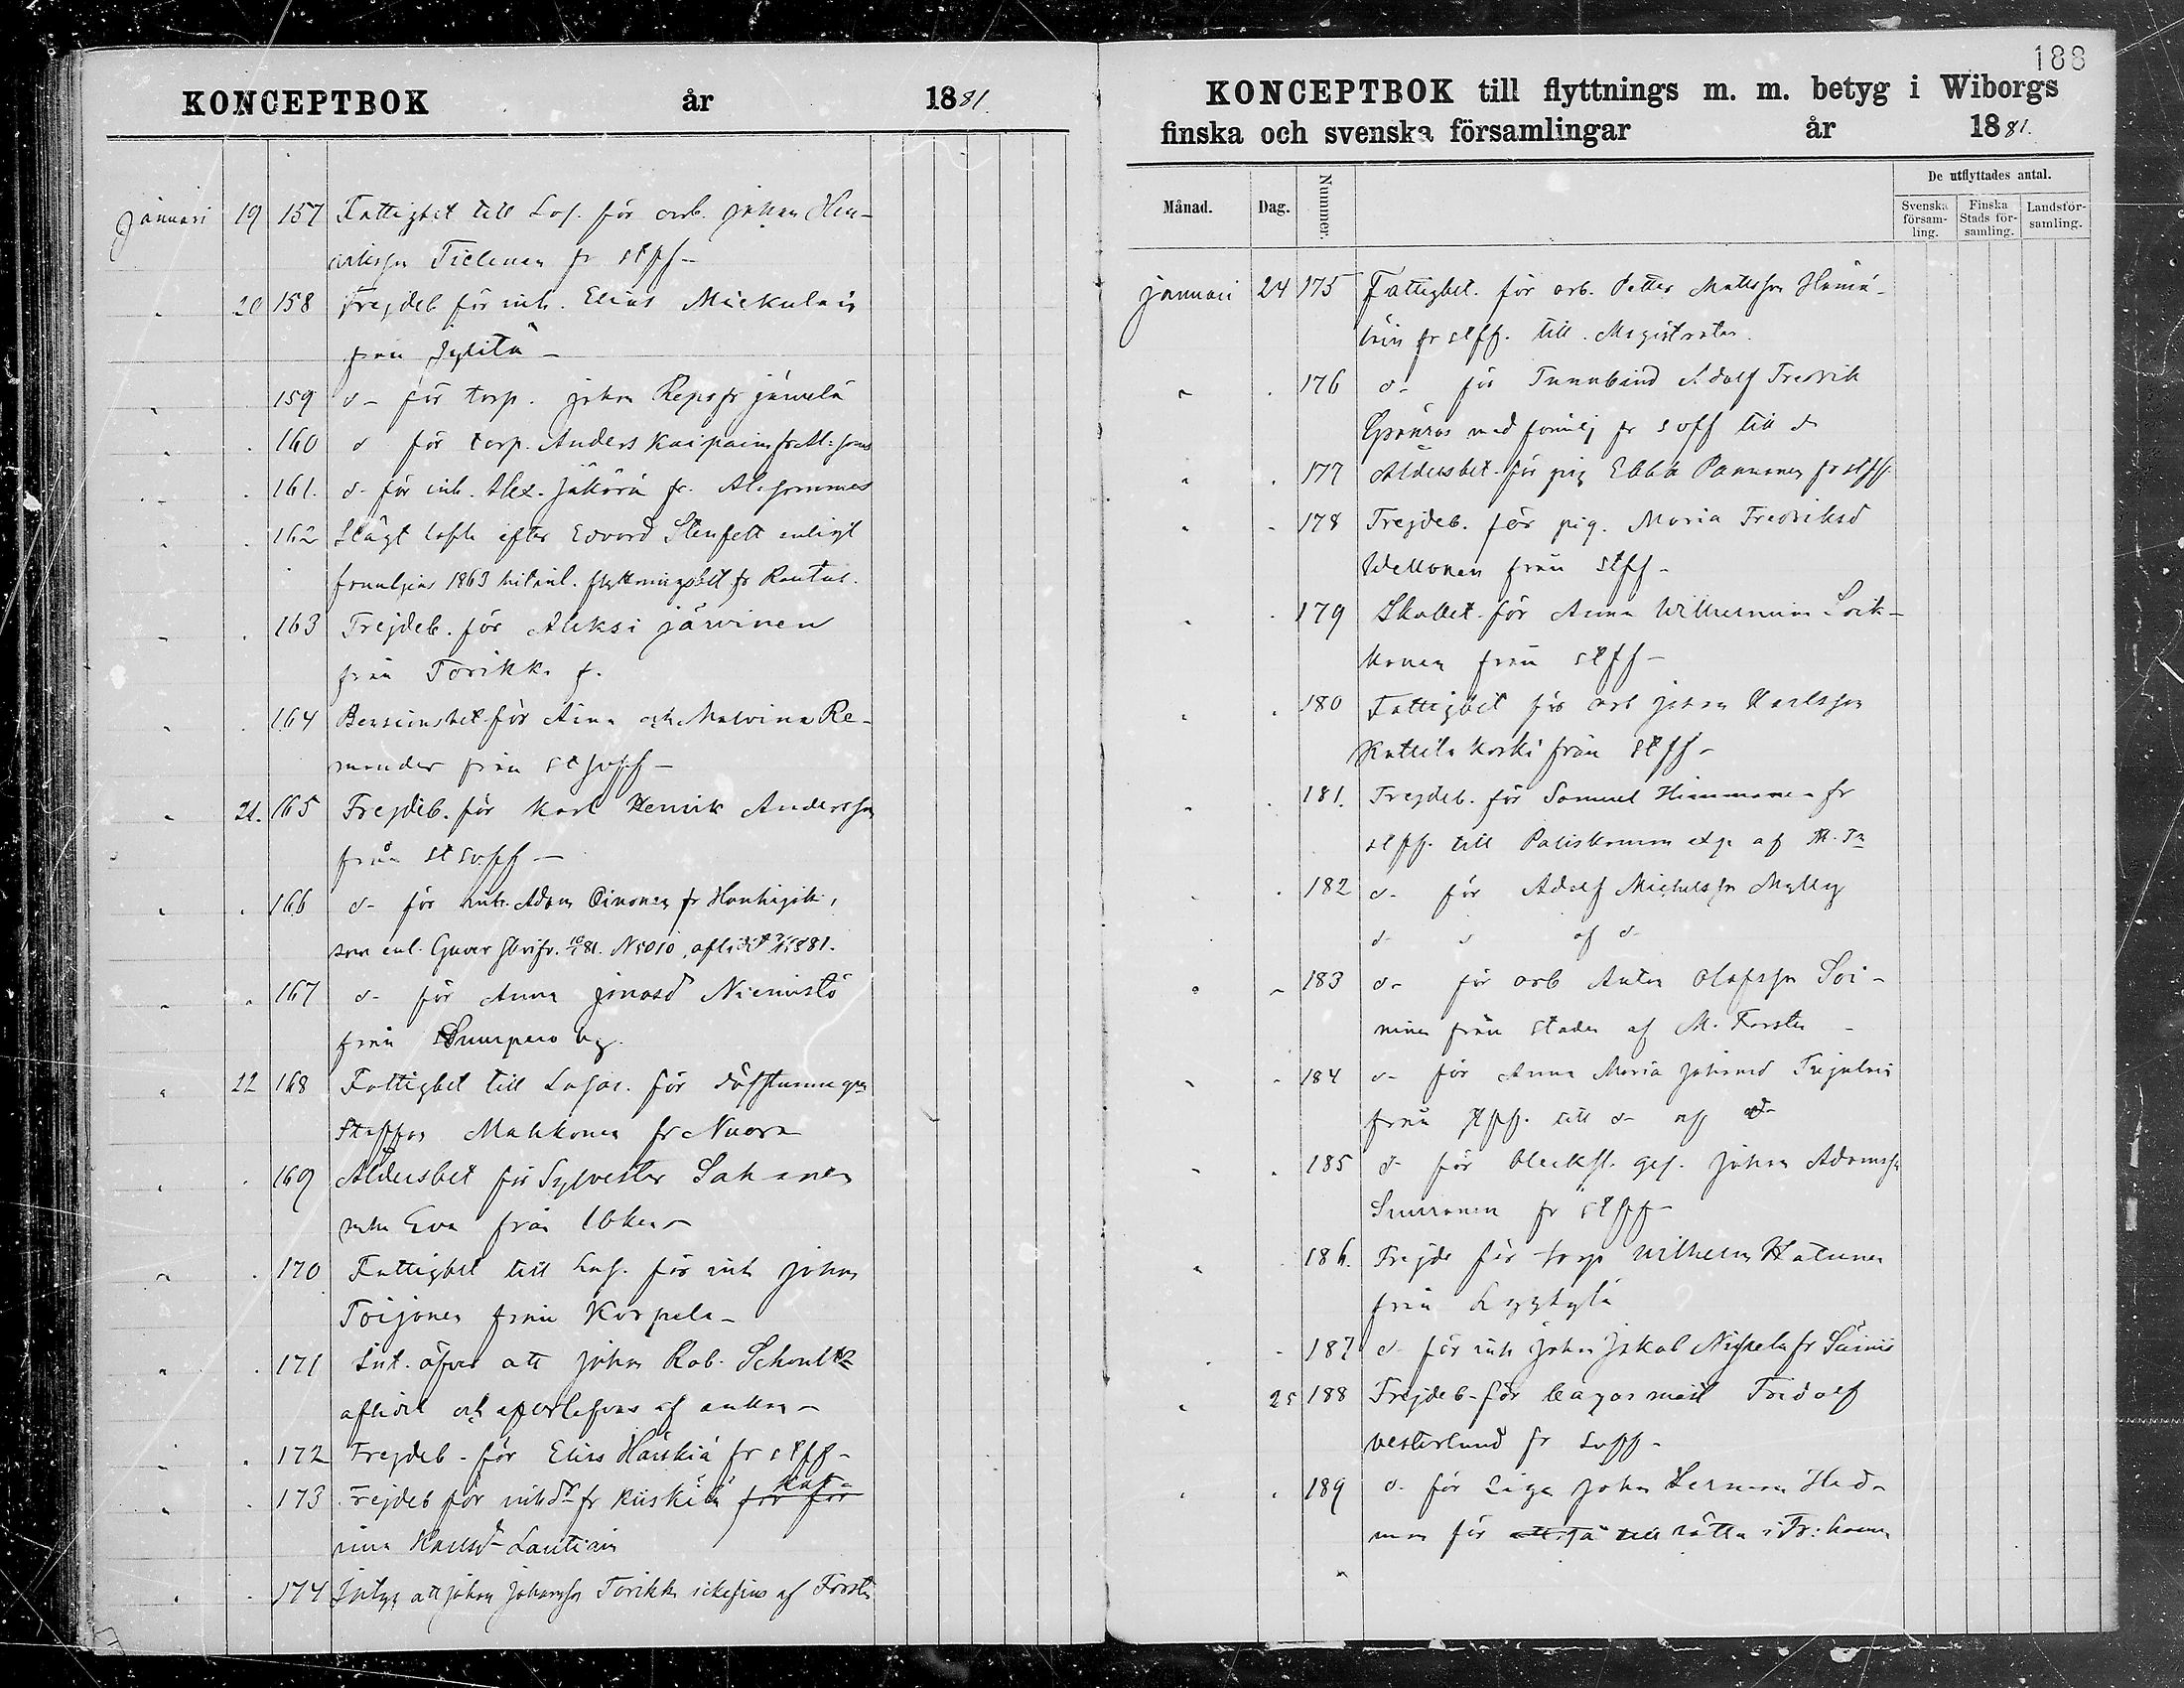 KONCEPTBOK år 1881.
Januari 19 157 Fattigbet till Las. för arb. Johan Hen-
riksson Tielinen fr stff-
20 158 Frejdeb för inh. Elias Mickulain
från Jylitä-
159 d- för torp. Johan Reposr Jämelä
160 d för torp. Anders Kaipain fr Al: soms
161. d- för inh. Alex. Jäkärä fr. Alasommes
162 Slägt efter Edvard Stenfelt enligt
familjens 1863 flyttningsbet fr Rautus.
163 Frejdeb. för Aleksi Järvinen
från Torikka g.
164 för Aina och Malvina Re-
mander från st svff-
21. 165 Frejdeb. för Karl Henrik Andersson
från st svff-
166 d- för inh. Adam Oinonen fr Honkijoki,
som enl. Guver skrifv. 10/1 81. N 5010, aflidit 1881.
167 d- för Anna Jonasd Niemistö
från Suurpero by.
22 168 Fattigbet till Lasar. för döfstumma
Staffan Mahkonen fr Nuora
169 Åldersbet för Sylvester Sahanen
Eva från
170 Fattigbet till Las. för inh Johan
Toijonen från Korpela-
171 Int. öfver att Johan Rob. Schoultz
aflidit och efterlefves af enkan-
172 Frejdeb. för Elias Härkiä fr stff-
173 Frejdeb för inhdr fr Kiiskilä för för Kat-
rina Karlsd- Lautiain
174 Intyg att Johan Johansson Torikka af Forstn
188
KONCEPTBOK till flyttnings m. m. betyg i Wiborgs
finska och svenska församlingar år 1881.
Månad. Dag. Nummer. De utflyttades antal.
Svenska församling. Finska Stads församling. Landsförsamling.
Januari 24 175 Fattigbet. för arb. Petter Mattsson Hämä-
läin fr stff. till Magistraten.
176 d- för Tunnbind Adolf Fredrik
Grönros med familj fr svff till d
177 Åldersbet. för pig Ebba Pannonen fr stff.
178 Frejdeb. för pig. Maria Fredriksd
Wellonen från stff-
179 Skolbet. för Anna Wilhelmina Soik-
konen från stff-
180 Fattigbet för arb Johan Karlsson
Kattilakoski från stff-
181. Frejdeb. för Samuel Himmanen fr
stff. till Poliskamm exp af M. Fn
182 d- för Adolf Michelsson Mylly
d- d af d-
183 d- för arb Anton Olofsson Soi-
ninen från staden af M. Forstn-
184 d- för Anna Maria Johansd Tujulain
från stff. till d- af d-
185 d- för blecksl. ges. Johan Adamss
Suuronen fr stff-
186. Frejdb för torp Wilhelm Hatunen
från Lyykylä
187 d- för inh Johan Jakob Nikkela fr Säiniö
25 188 Frejdeb- för bagarmäst Fridolf
Vesterlund fr svff-
189 d. för Johan Herman Hed-
man för att få till rätta i Fr: hamn